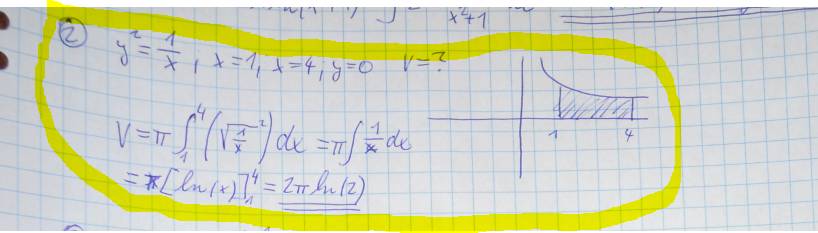 x²+1
②
y² = 1/x, x=1, x=4; y=0 V=?
V = π ∫₁⁴ (√(1/x)²) dx = π∫ 1/x dx
= π[ln(x)]₁⁴ = 2πln(2)
1 4